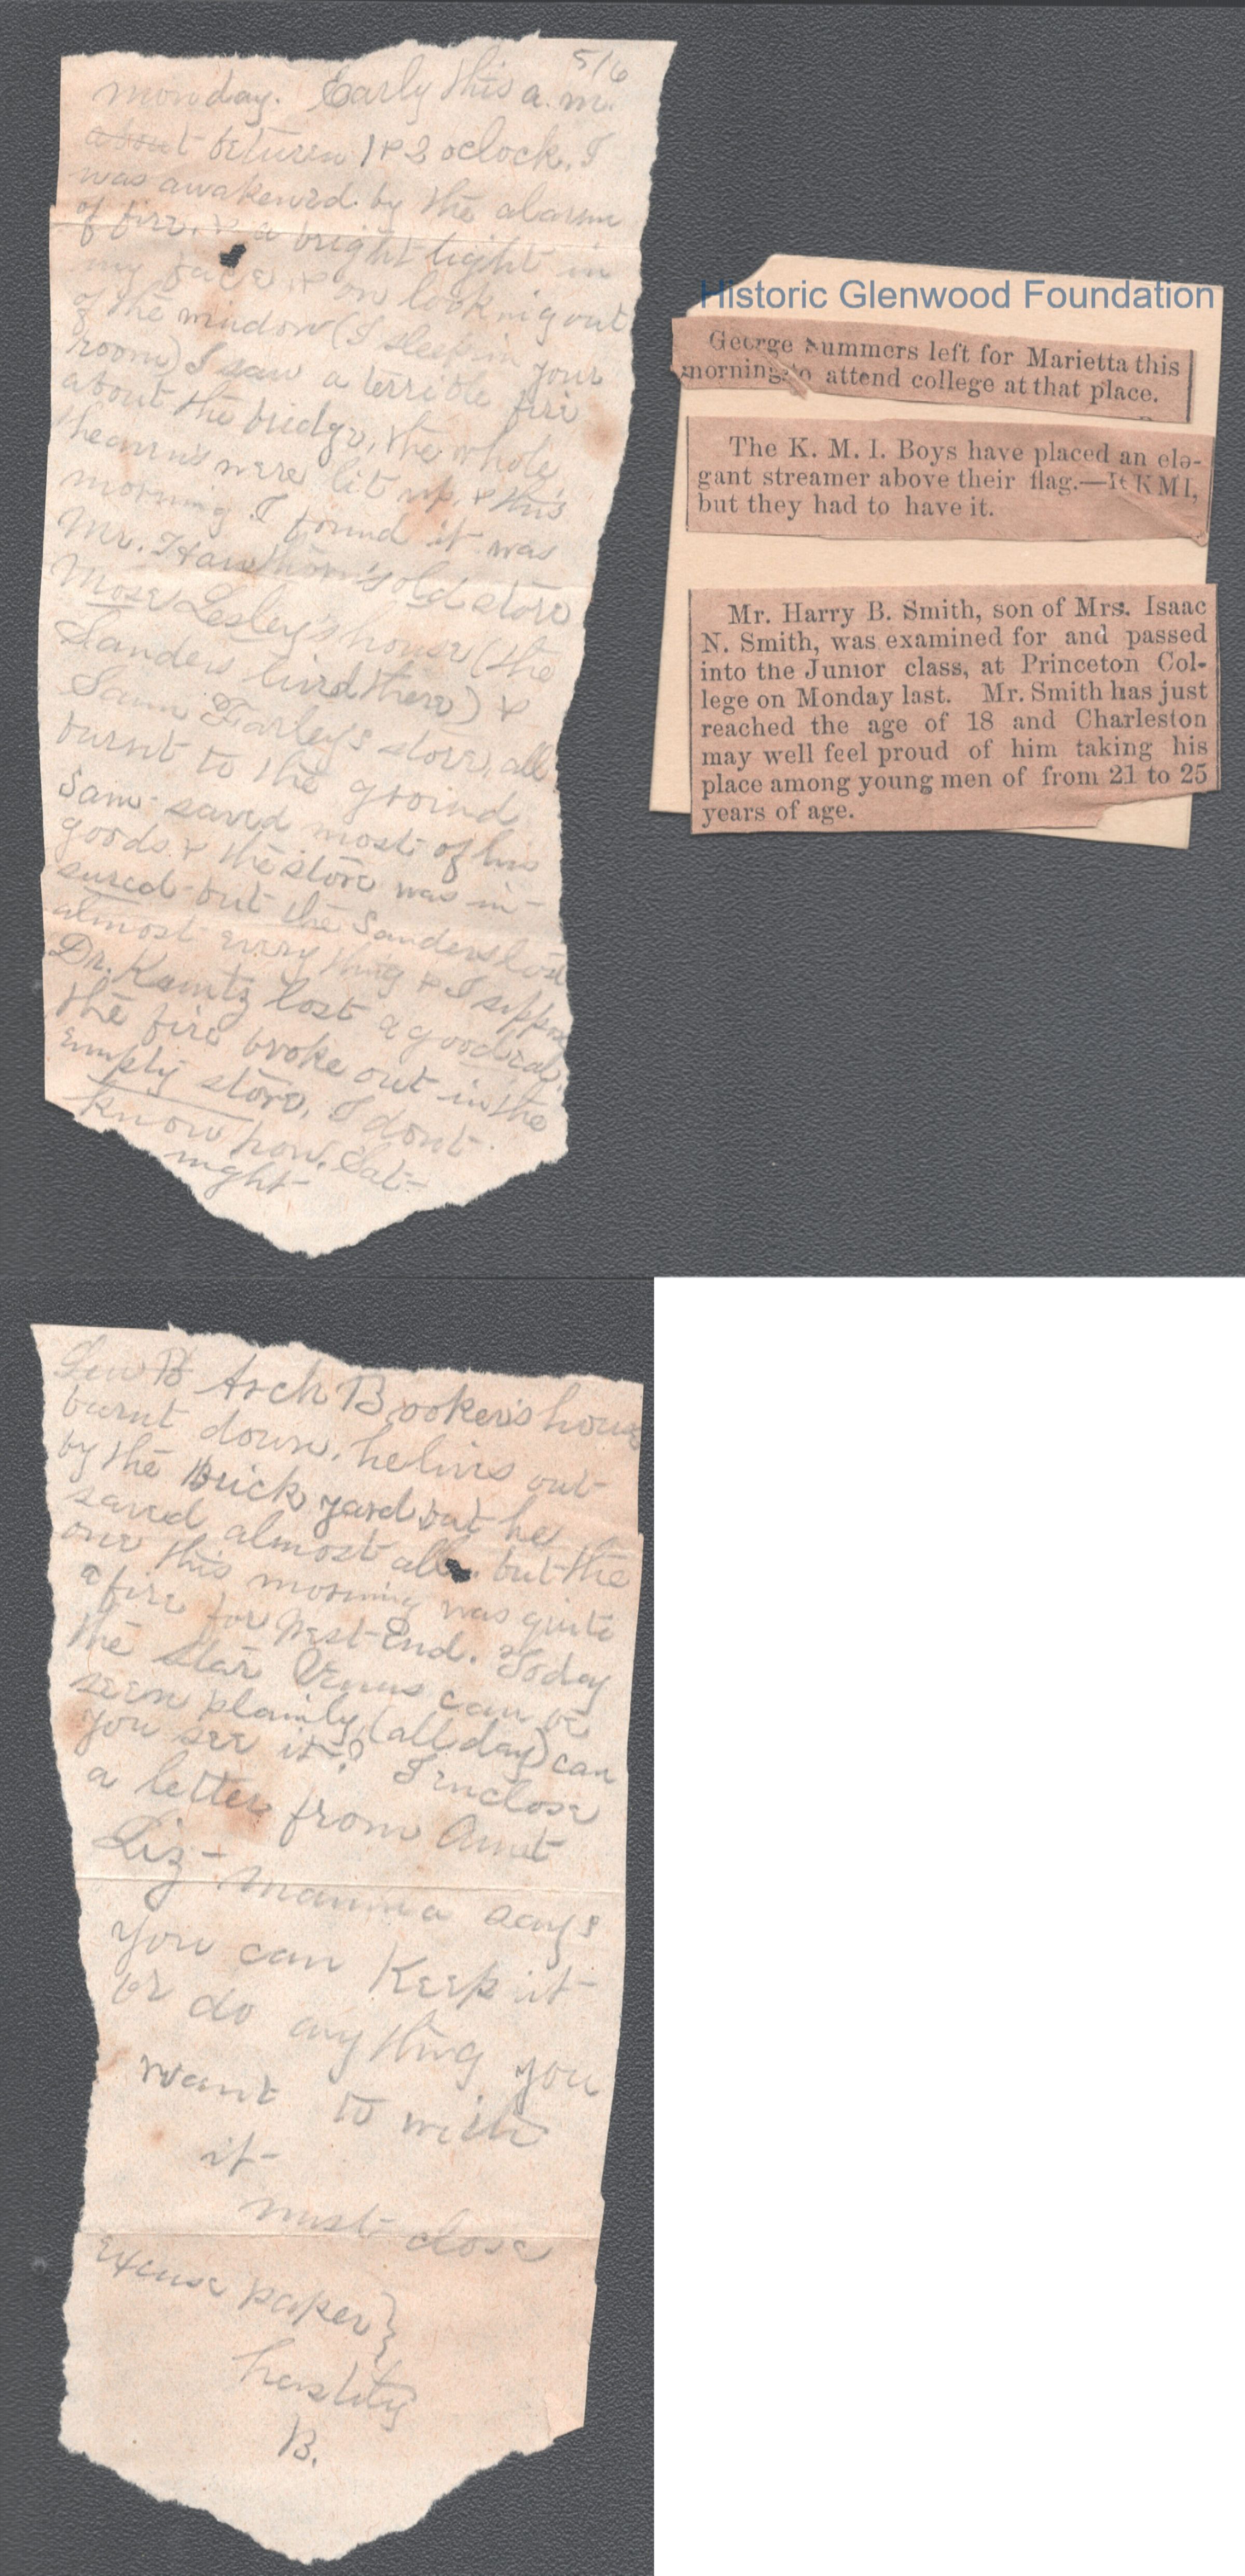 5/6
monday. Early this a.m.
about between 1 & 2 oclock, I
was awakened by the alarm
of fire, & a bright light in
my face, & on looking out
of the window (I sleep in your
room) I saw a terrible fire
about the bridge, the whole
heavens were lit up, & this
morning I found it was
Mr. Hawthorn's old store
Mose Lesley's house (the
Sanders lived there) &
Sam Farley's store, all
burnt to the groind
Sam saved most of his
goods & the store was in-
sured but the Sanders lost
almost every thing & I suppose
Dr. Kuntz lost a good eal,
the fire broke out in the
empty store, I dont
know how. Sat-
night
Historic Glenwood Foundation
George Summers left for Marietta this
morning to attend college at that place.
The K. M. I. Boys have placed an ele-
gant streamer above their flag.—It K M I,
but they had to have it.
Mr. Harry B. Smith, son of Mrs. Isaac
N. Smith, was examined for and passed
into the Junior class, at Princeton Col-
lege on Monday last. Mr. Smith has just
reached the age of 18 and Charleston
may well feel proud of him taking his
place among young men of from 21 to 25
years of age.
Arch Booker's house
burnt down, he lives out
by the Brick yard but he
saved almost all. but the
one this morning was quite
a fire for West-End. Today
the star Venus can be
seen plainly (all day) can
you see it? I enclose
a letter from Aunt
Liz- Mamma says
you can Keep it
or do any thing you
want to with
it-
must close
excuse paper}
hastity
B.